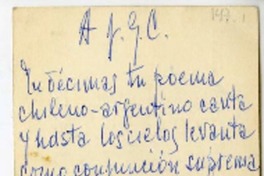 A J. G. C.
En décimas tu poema
chileno-argentino canta
y hasta los cielos levanta
como conjunción suprema